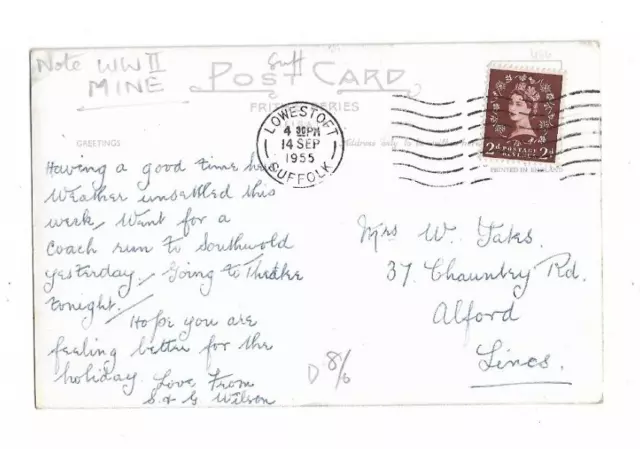 Note WW II
MINE
Suff
POST CARD
SERIES
GREETINGS
PRINTED IN ENGLAND
LOWESTOFT
4 30 PM
14 SEP
1955
SUFFOLK
2d POSTAGE REVENUE 2d
Having a good time here
Weather unsettled this
week, Went for a
coach run to Southwold
yesterday, Going to Theatre
tonight.
Hope you are
feeling better for the
holiday. Love From
S & G Wilson
Mrs W. Yates.
37, Chauntry Rd.
Alford
Lincs.
D 8/6